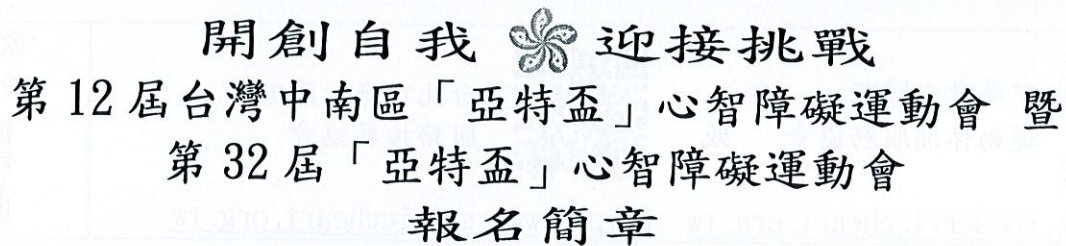 開創自我 迎接挑戰
第 12 屆台灣中南區「亞特盃」心智障礙運動會 暨
第 32 屆「亞特盃」心智障礙運動會
報名簡章